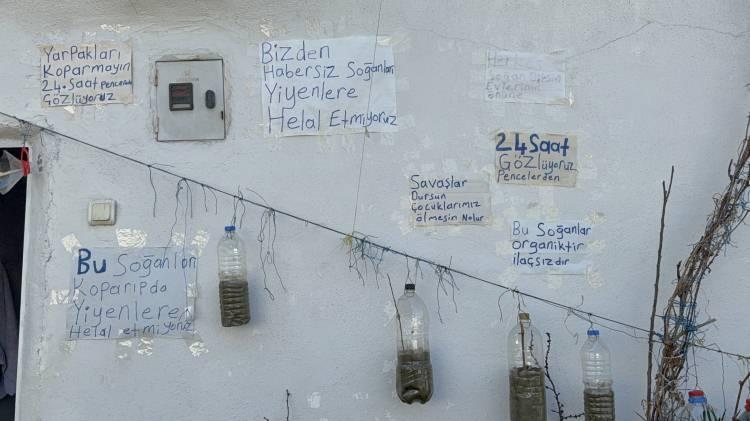 YarPakları
Koparmayın
24.Saat Pencerden
GÖZlÜyoruz
Bizden
Habersiz Soğanları
Yiyenlere
Helal Etmiyoruz
Her
Soğan Diksin
Evlerinin
önüne
24 Saat
GÖZlüyoruz
Pencelerden
Savaşlar
Dursun
çocuklarımız
ölmesin Nolur
Bu Soğanlar
organiktir
ilaçsızdır
Bu Soğanları
KoparıPda
Yiyenlere
Helal etmiyoruz